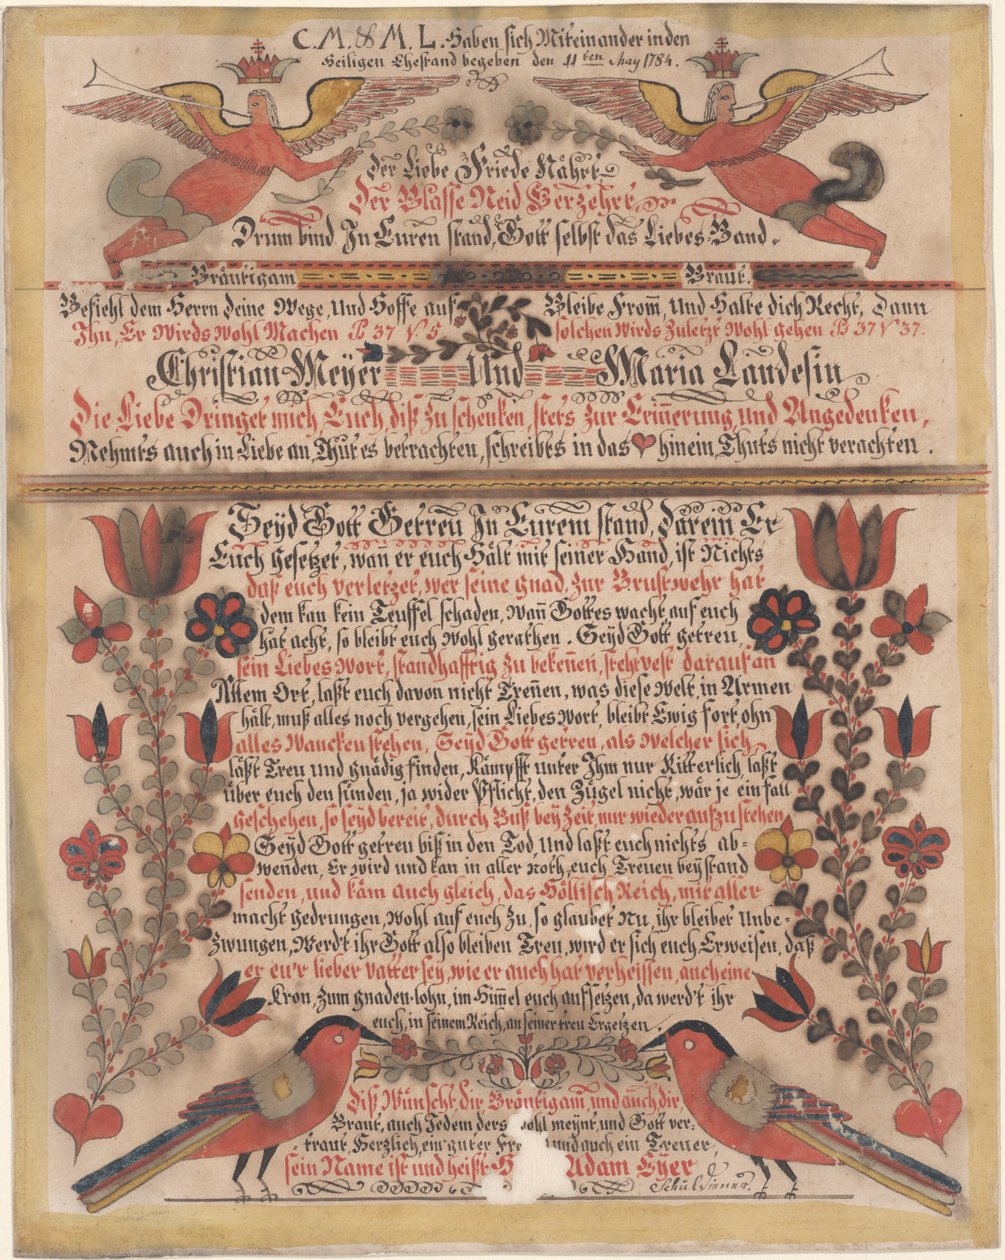 C. M. & M. L. Haben sich Miteinander in den
Heiligen Ehestand begeben den 11ten May 1784.
Der Liebe Friede Nährt
Der Blasse Neid Verzehrt
Drum bind In Euren stand, Gott selbst das Liebes-Band.
Bräutigam
Braut.
Befiehl dem Herrn deine Wege, Und Hoffe auf
Ihn, Er Wirds Wohl Machen Ps 37 V 5
Bleibe From̅, Und Halte dich Recht, Dann
solchen wirds Zuletzt Wohl gehen Ps 37 V 37.
Christian Meÿer Und Maria Landesin
Die Liebe Dringet mich, Euch diß Zu schenken, stets Zur Erin̅erung, und Angedenken,
Nehmts auch in Liebe an, Thut es betrachten, schreibts in das hinein, Thuts nicht verachten.
Seÿd Gott Getreu In Eurem stand, Darein Er
Euch Gesetzet, wan̅ er euch Hält mit seiner Hand, ist Nichts
daß euch verletzet, wer seine gnad, Zur Brustwehr hat
dem kan kein Teuffel schaden, Wan̅ Gottes wacht auf euch
hat acht, so bleibt euch Wohl gerathen. Seÿd Gott getreu,
sein Liebes Wort, standhafftig Zu beken̅en, steht vest darauf an
Allem Ort, laßt euch davon nicht Tren̅en, was diese Welt, in Armen
hält, muß alles noch vergehen, sein Liebes Wort, bleibt Ewig fort, ohn
alles Wancken stehen, Seÿd Gott getreu, als Welcher sich
läßt Treu und gnädig finden, Kämpfft unter Ihm nur Ritterlich laßt
über euch den sünden, ja wider Pflicht, den Zügel nicht, wär je ein fall
Geschehen, so seÿd bereit, durch Buß beÿ Zeit nur wieder aufzustehen
Seÿd Gott getreu biß in den Tod, Und laßt euch nichts ab-
wenden, Er wird und kan in aller noth, euch Treuen beÿstand
senden, und käm auch gleich, das Höllisch Reich, mit aller
macht gedrungen, Wohl auf euch Zu, so glaubet Nu, ihr bleibet Unbe-
Zwungen, Werd't ihr Gott also bleiben Treu, wird er sich euch Erweisen, daß
er eu'r lieber vatter seÿ, wie er auch hat verheissen, auch eine
Kron, Zum gnaden-lohn, im Him̅el euch aufsetzen, da werd't ihr
euch, in seinem Reich, an seiner treu Ergetzen.
Diß Wünscht, dir Bräutigam, und auch dir,
Braut, auch Jedem ders wohl meÿnt, und Gott ver-
traut Herzlich, ein guter und auch ein Treuer,
sein Name ist und heißt Adam Eÿer
Schuldiener.